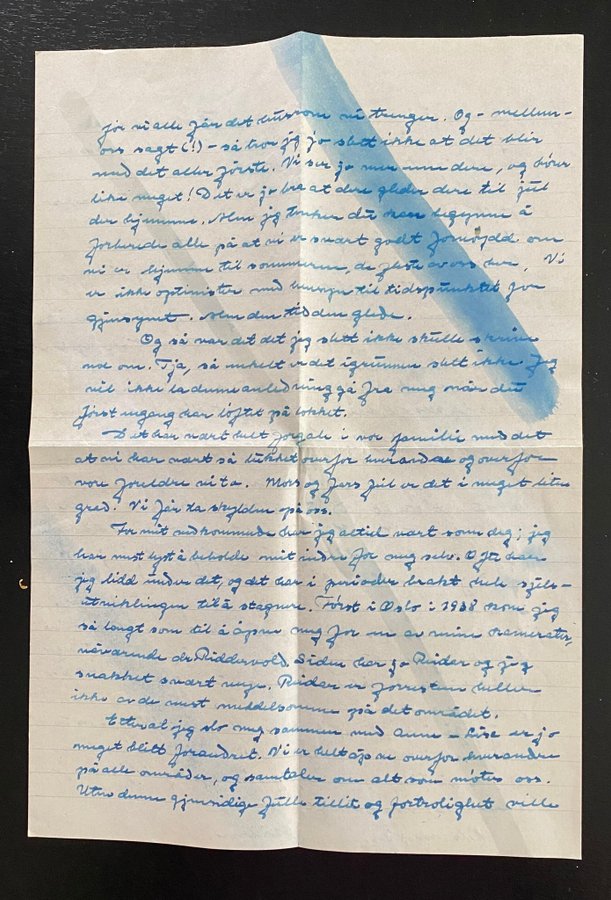 før vi alle får det huset som vi trenger. Og - mellem-
oss sagt (!) - så tror jeg jo slett ikke at det blir
med det aller første. Vi ser jo mer enn dere, og hører
like meget! Det er jo bra at dere gleder dere til jul
der hjemme. Men jeg tenker du kan begynne å
forberede alle på at vi er svært godt fornøyd om
vi er hjemme til sommeren, de fleste av oss her. Vi
er ikke optimister med hensyn til tidspunktet for
gjensynet. Men den tid den glede.
Og så var det det jeg slett ikke skulle skrive
noe om. Tja, så enkelt er det i grunnen slett ikke. Jeg
vil ikke la denne anledning gå fra meg når du
først engang har løftet på lokket.
Det har vært helt forgalt i vor familie med det
at vi har vært så lukket overfor hverandre og overfor
våre foreldre vi to. Mors og fars feil er det i meget liten
grad. Vi får ta skylden på oss.
For mitt vedkommende har jeg altid vært som deg; jeg
har mest lyst å beholde mitt indre for meg selv. Ofte har
jeg lidd under det, og det har i perioder brakt hele sjels-
utviklingen til å stagnere. Først i Oslo i 1938 kom jeg
så langt som til å åpne meg for en av mine kamerater,
nåværende dr. Riddervold. Siden har jo Reidar og jeg
snakket svært meget. Reidar er forresten heller
ikke av de mest meddelsomme på det området.
Etter at jeg slo meg sammen med Anne-Lise er jo
meget blitt forandret. Vi er helt åpne overfor hverandre
på alle områder, og samtaler om alt som møter oss.
Uten denne gjensidige fulle tillit og fortrolighet ville